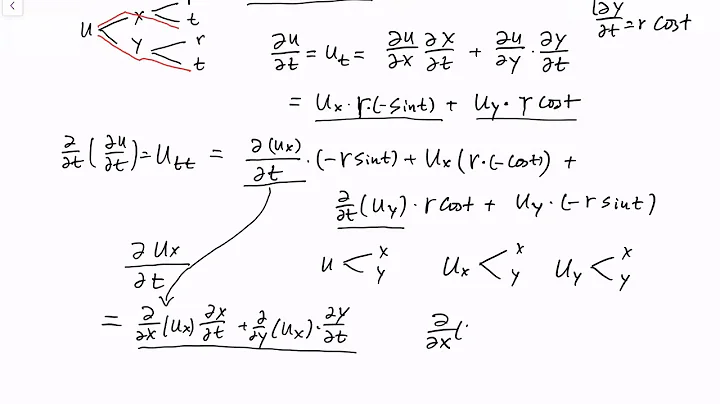 u x r t
y r t
∂y/∂t = r cost
∂u/∂t = u_t = ∂u/∂x ∂x/∂t + ∂u/∂y · ∂y/∂t
= u_x · r·(-sint) + u_y · r cost
∂/∂t (∂u/∂t) = u_tt = ∂(u_x)/∂t · (-r sint) + u_x (r·(-cost)) +
∂/∂t (u_y) · r cost + u_y · (-r sint)
∂u_x/∂t
u < x y
u_x < x y
u_y < x y
= ∂/∂x (u_x) ∂x/∂t + ∂/∂y (u_x) · ∂y/∂t
∂/∂x (